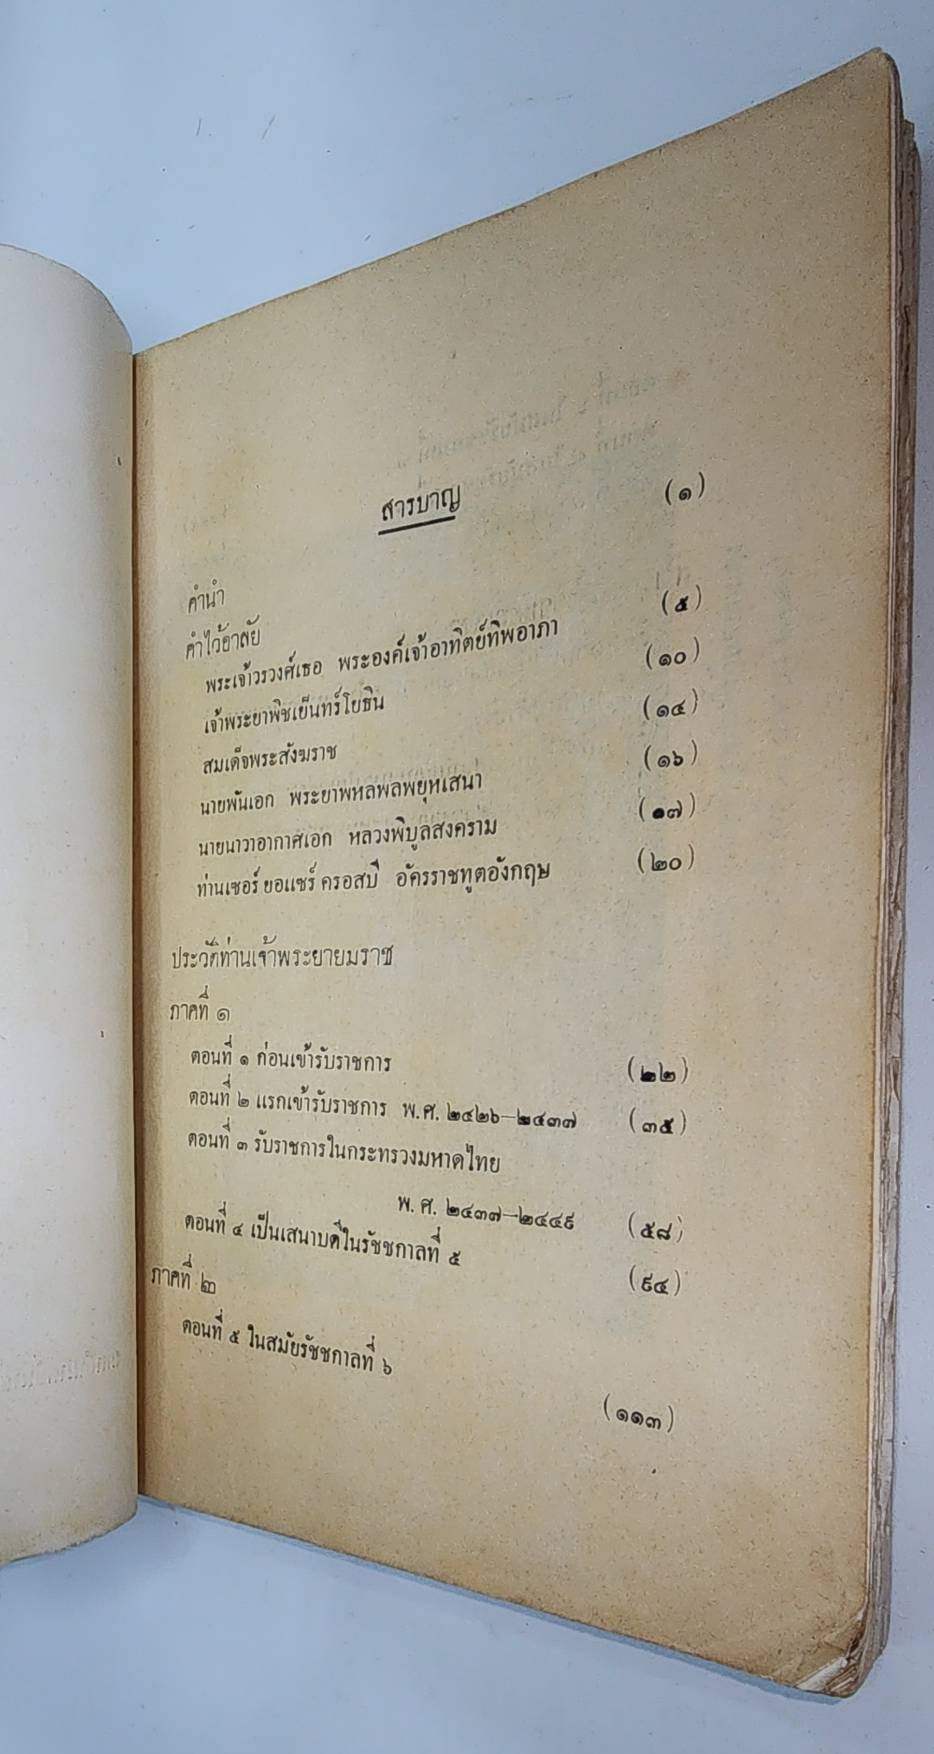 สารบาญ
คำนำ (๑)
คำไว้อาลัย
พระเจ้าวรวงศ์เธอ พระองค์เจ้าอาทิตย์ทิพอาภา (๕)
เจ้าพระยาพิชเย็นทร์โยธิน (๑๐)
สมเด็จพระสังฆราช (๑๔)
นายพันเอก พระยาพหลพลพยุหเสนา (๑๖)
นายนาวาอากาศเอก หลวงพิบูลสงคราม (๑๗)
ท่านเซอร์ ยอแซร์ ครอสบี อัครราชทูตอังกฤษ (๒๐)
ประวัติท่านเจ้าพระยายมราช
ภาคที่ ๑
ตอนที่ ๑ ก่อนเข้ารับราชการ (๒๒)
ตอนที่ ๒ แรกเข้ารับราชการ พ.ศ. ๒๔๒๖–๒๔๓๗ (๓๕)
ตอนที่ ๓ รับราชการในกระทรวงมหาดไทย
พ.ศ. ๒๔๓๗–๒๔๔๙ (๕๘)
ตอนที่ ๔ เป็นเสนาบดีในรัชชกาลที่ ๕ (๙๔)
ภาคที่ ๒
ตอนที่ ๕ ในสมัยรัชชกาลที่ ๖ (๑๑๓)